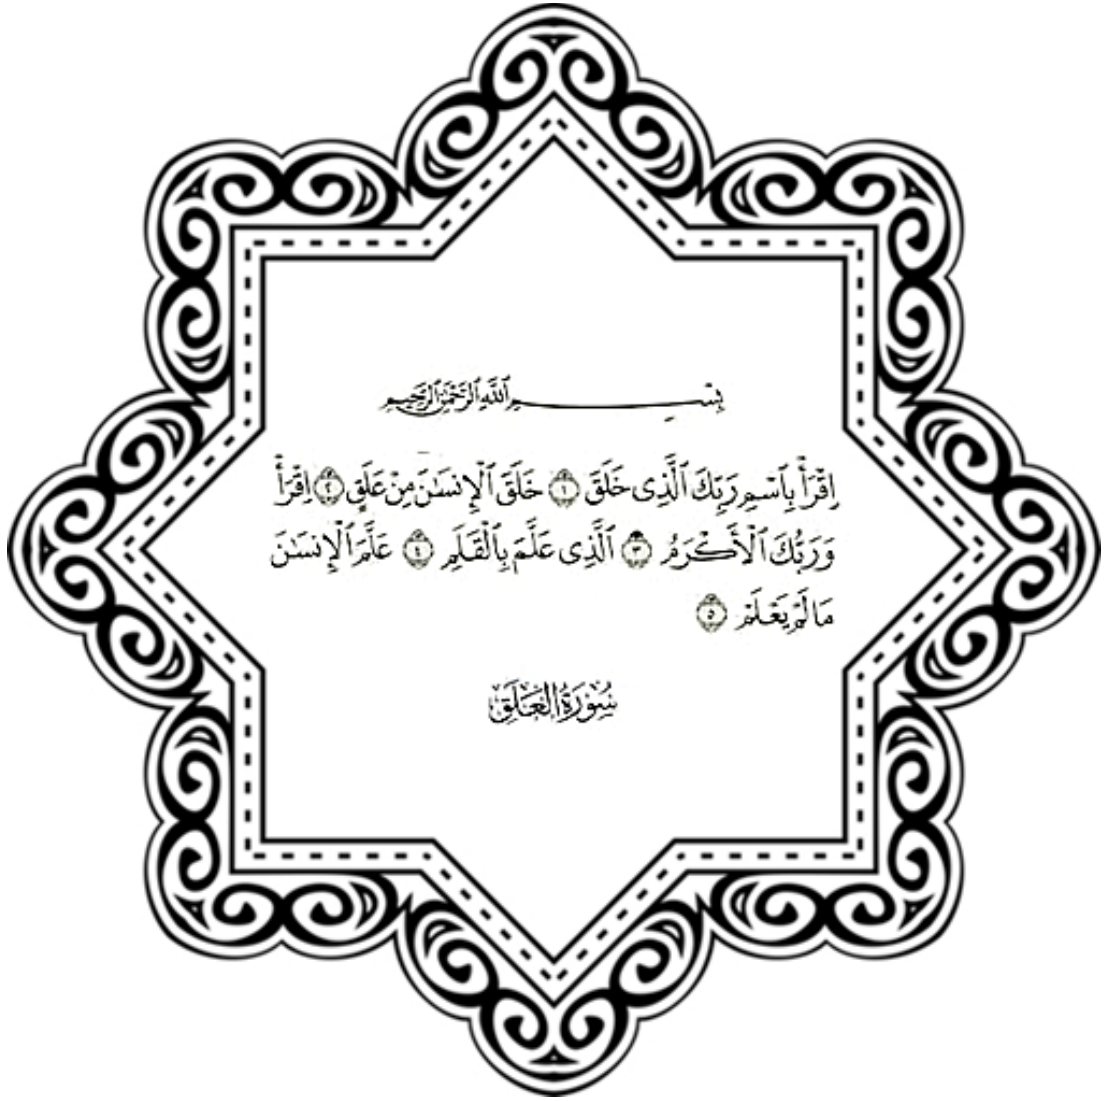 بِسْمِ ٱللَّهِ ٱلرَّحْمَٰنِ ٱلرَّحِيمِ
ٱقْرَأْ بِٱسْمِ رَبِّكَ ٱلَّذِى خَلَقَ ١ خَلَقَ ٱلْإِنسَٰنَ مِنْ عَلَقٍ ٢ ٱقْرَأْ
وَرَبُّكَ ٱلْأَكْرَمُ ٣ ٱلَّذِى عَلَّمَ بِٱلْقَلَمِ ٤ عَلَّمَ ٱلْإِنسَٰنَ
مَا لَمْ يَعْلَمْ ٥
سُورَةُ العَلَقِ